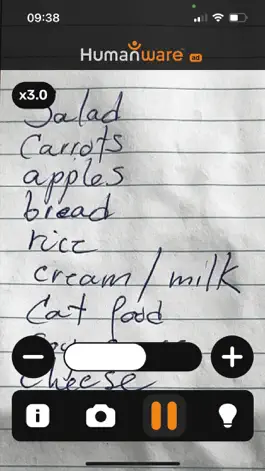 09:38
Humanware ad
x3.0
Salad
Carrots
apples
bread
rice
cream/milk
Cat food
cheese